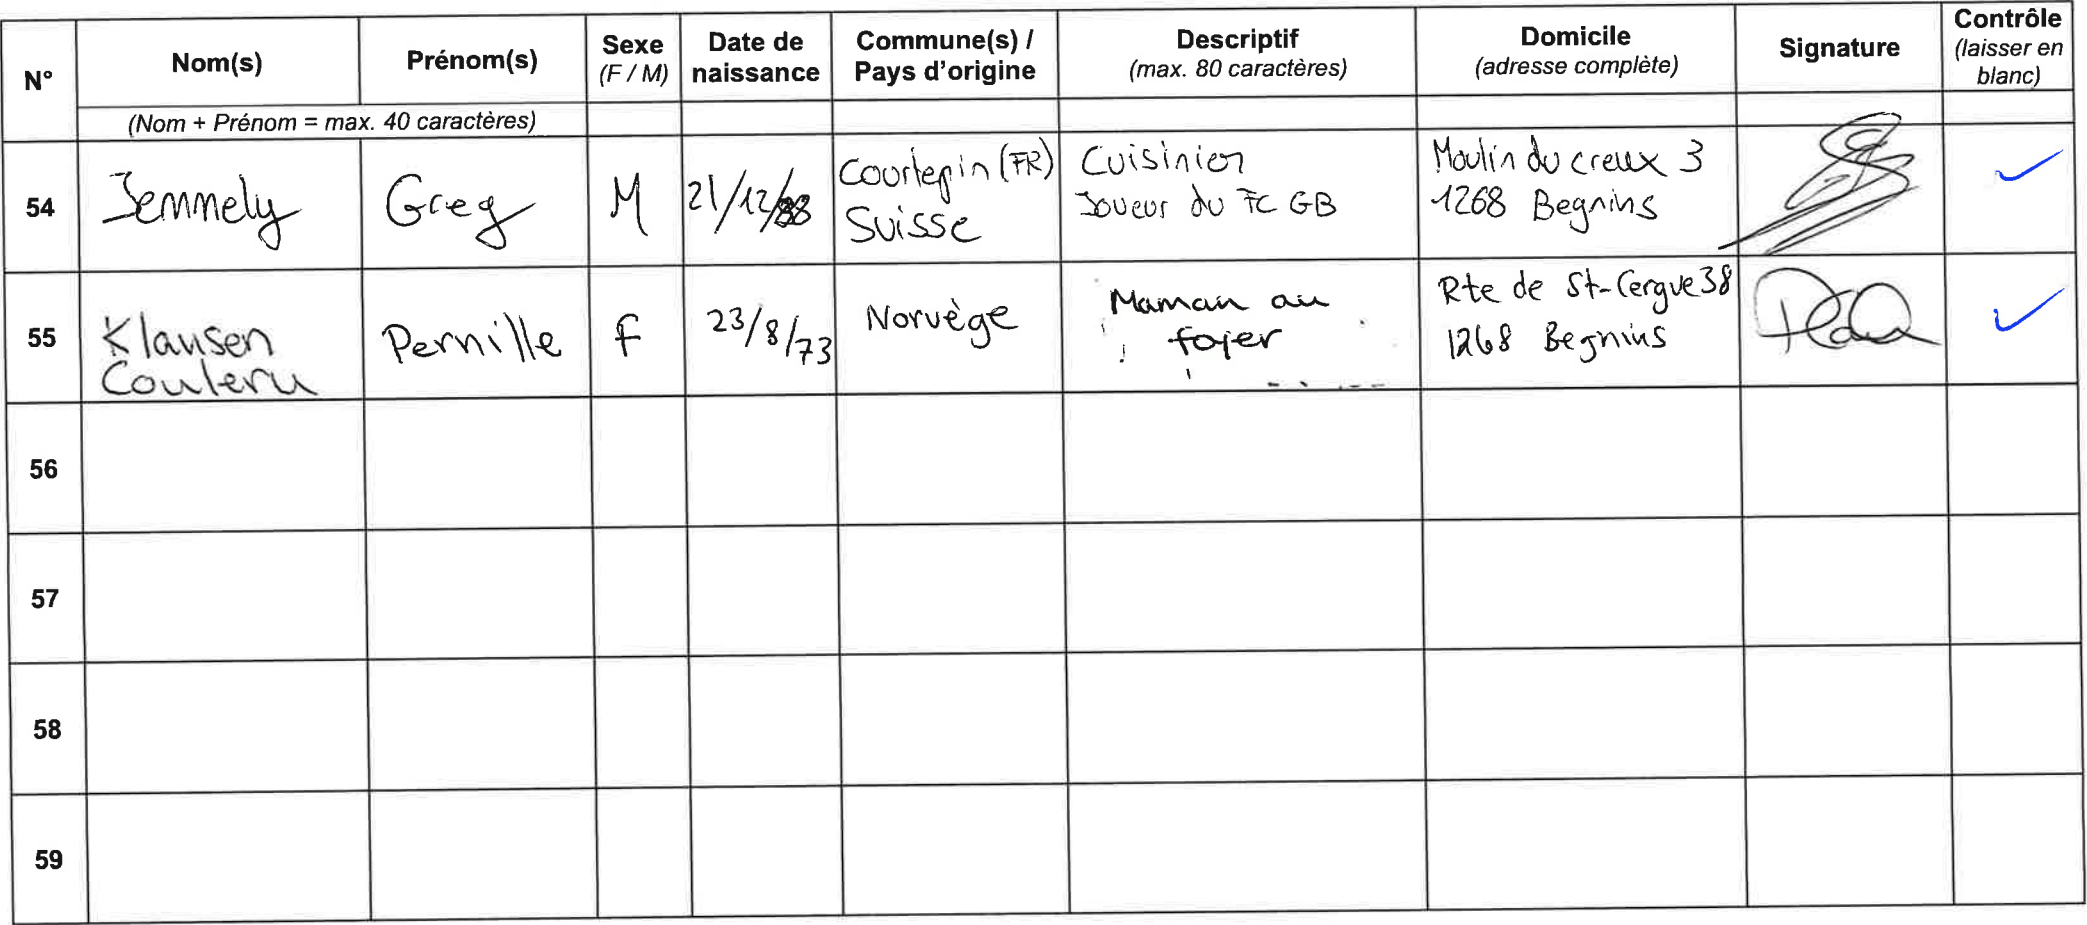 N° Nom(s) Prénom(s) Sexe (F / M) Date de naissance Commune(s) / Pays d'origine Descriptif (max. 80 caractères) Domicile (adresse complète) Signature Contrôle (laisser en blanc)
(Nom + Prénom = max. 40 caractères)
54 Jemmely Greg M 21/12/88 Courtepin (FR) Suisse Cuisinier Joueur du FC GB Moulin du creux 3 1268 Begnins
55 Klausen Couleru Pernille F 23/8/73 Norvège Maman au foyer Rte de St-Cergue 38 1268 Begnins
56
57
58
59